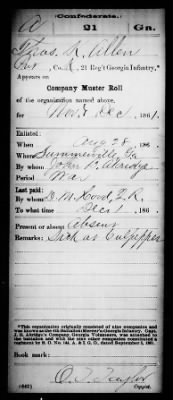 Confederate.
A 21 Ga.
Thos. R. Allen
Pvt, Co. A, 21 Reg't Georgia Infantry.*
Appears on
Company Muster Roll
of the organization named above,
for Nov & Dec, 1861.
Enlisted:
When Aug 28, 186
Where Summerville, Ga
By whom John R.
Period War
Last paid:
By whom D. M. Hood, Q. R.
To what time Dec 1, 186
Present or absent Absent
Remarks: Sick at Culpepper
*This organization originally consisted of nine companies and was known as the 4th Battalion (Mercer's) Georgia Infantry. Capt.
Company, Georgia Volunteers, was attached to this
battalion and with the nine other companies constituted a
regiment by S. O. No. A. & I. G. O., dated September 1861.
Book mark:
(642) Copyist.